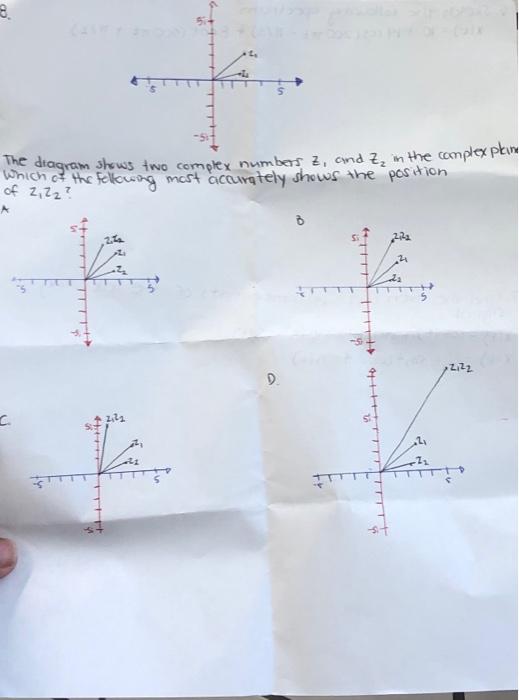 8.
5i
z₁
z₂
5 5
-5i
The diagram shows two complex numbers z₁ and z₂ in the complex plane
which of the following most accurately shows the position
of z₁z₂?
A B
5 5i
z₁z₂ z₁z₂
z₁ z₁
z₂ z₂
-5 5 5
-5i -5i
C. D.
z₁z₂
5i z₁z₂ 5i
z₁ z₁
z₂ z₂
-5 5 5
-5i -5i